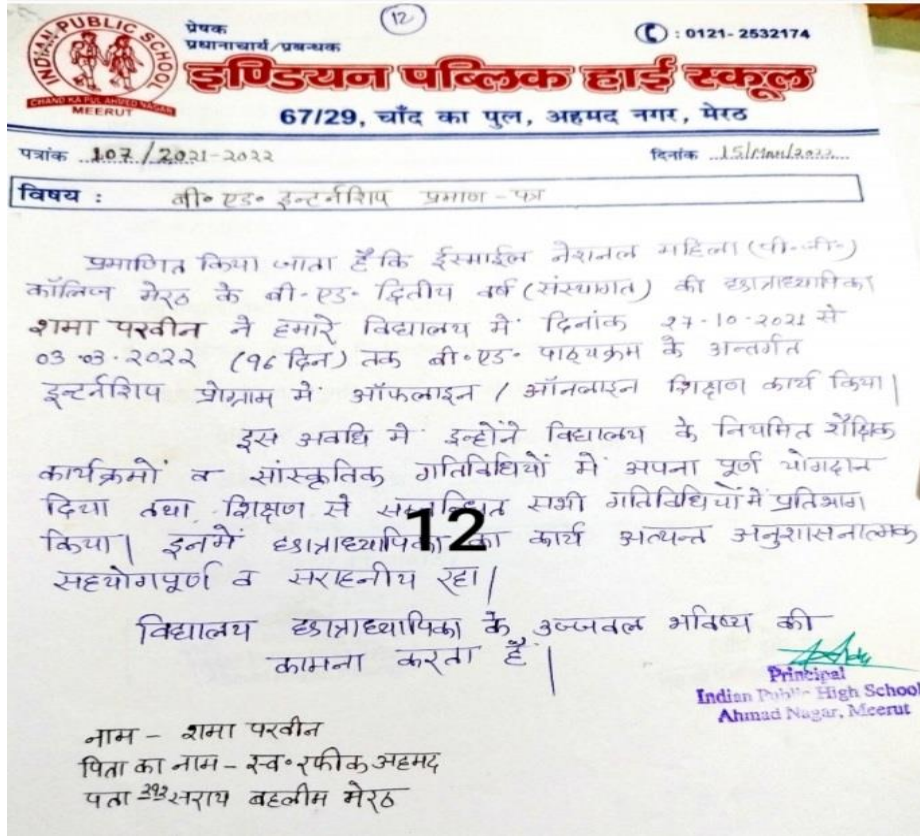 12
INDIAN PUBLIC SCHOOL
CHAND KA PUL AHMED NAGAR
MEERUT
प्रेषक
प्रधानाचार्य/प्रबन्धक
: 0121- 2532174
इण्डियन पब्लिक हाई स्कूल
67/29, चाँद का पुल, अहमद नगर, मेरठ
पत्रांक 107/2021-2022
दिनांक 15/Mar/2022
विषय : बी० एड० इन्टर्नशिप प्रमाण-पत्र
प्रमाणित किया जाता है कि ईस्माईल नेशनल महिला (पी०जी०)
कॉलिज मेरठ के बी०एड० द्वितीय वर्ष (संस्थागत) की छात्राध्यापिका
शमा परवीन ने हमारे विद्यालय में दिनांक 27-10-2021 से
03-03-2022 (96 दिन) तक बी०एड० पाठ्यक्रम के अन्तर्गत
इन्टर्नशिप प्रोग्राम में ऑफलाइन / ऑनलाइन शिक्षण कार्य किया|
इस अवधि में इन्होंने विद्यालय के नियमित शैक्षिक
कार्यक्रमों व सांस्कृतिक गतिविधियों में अपना पूर्ण योगदान
दिया तथा शिक्षण से सम्बन्धित सभी गतिविधियों में प्रतिभाग
किया| इनमें छात्राध्यापिका का कार्य अत्यन्त अनुशासनात्मक
12
सहयोगपूर्ण व सराहनीय रहा|
विद्यालय छात्राध्यापिका के उज्जवल भविष्य की
कामना करता है|
Principal
Indian Public High School
Ahmad Nagar, Meerut
नाम - शमा परवीन
पिता का नाम - स्व० रफीक अहमद
पता 393 सराय बहलीम मेरठ